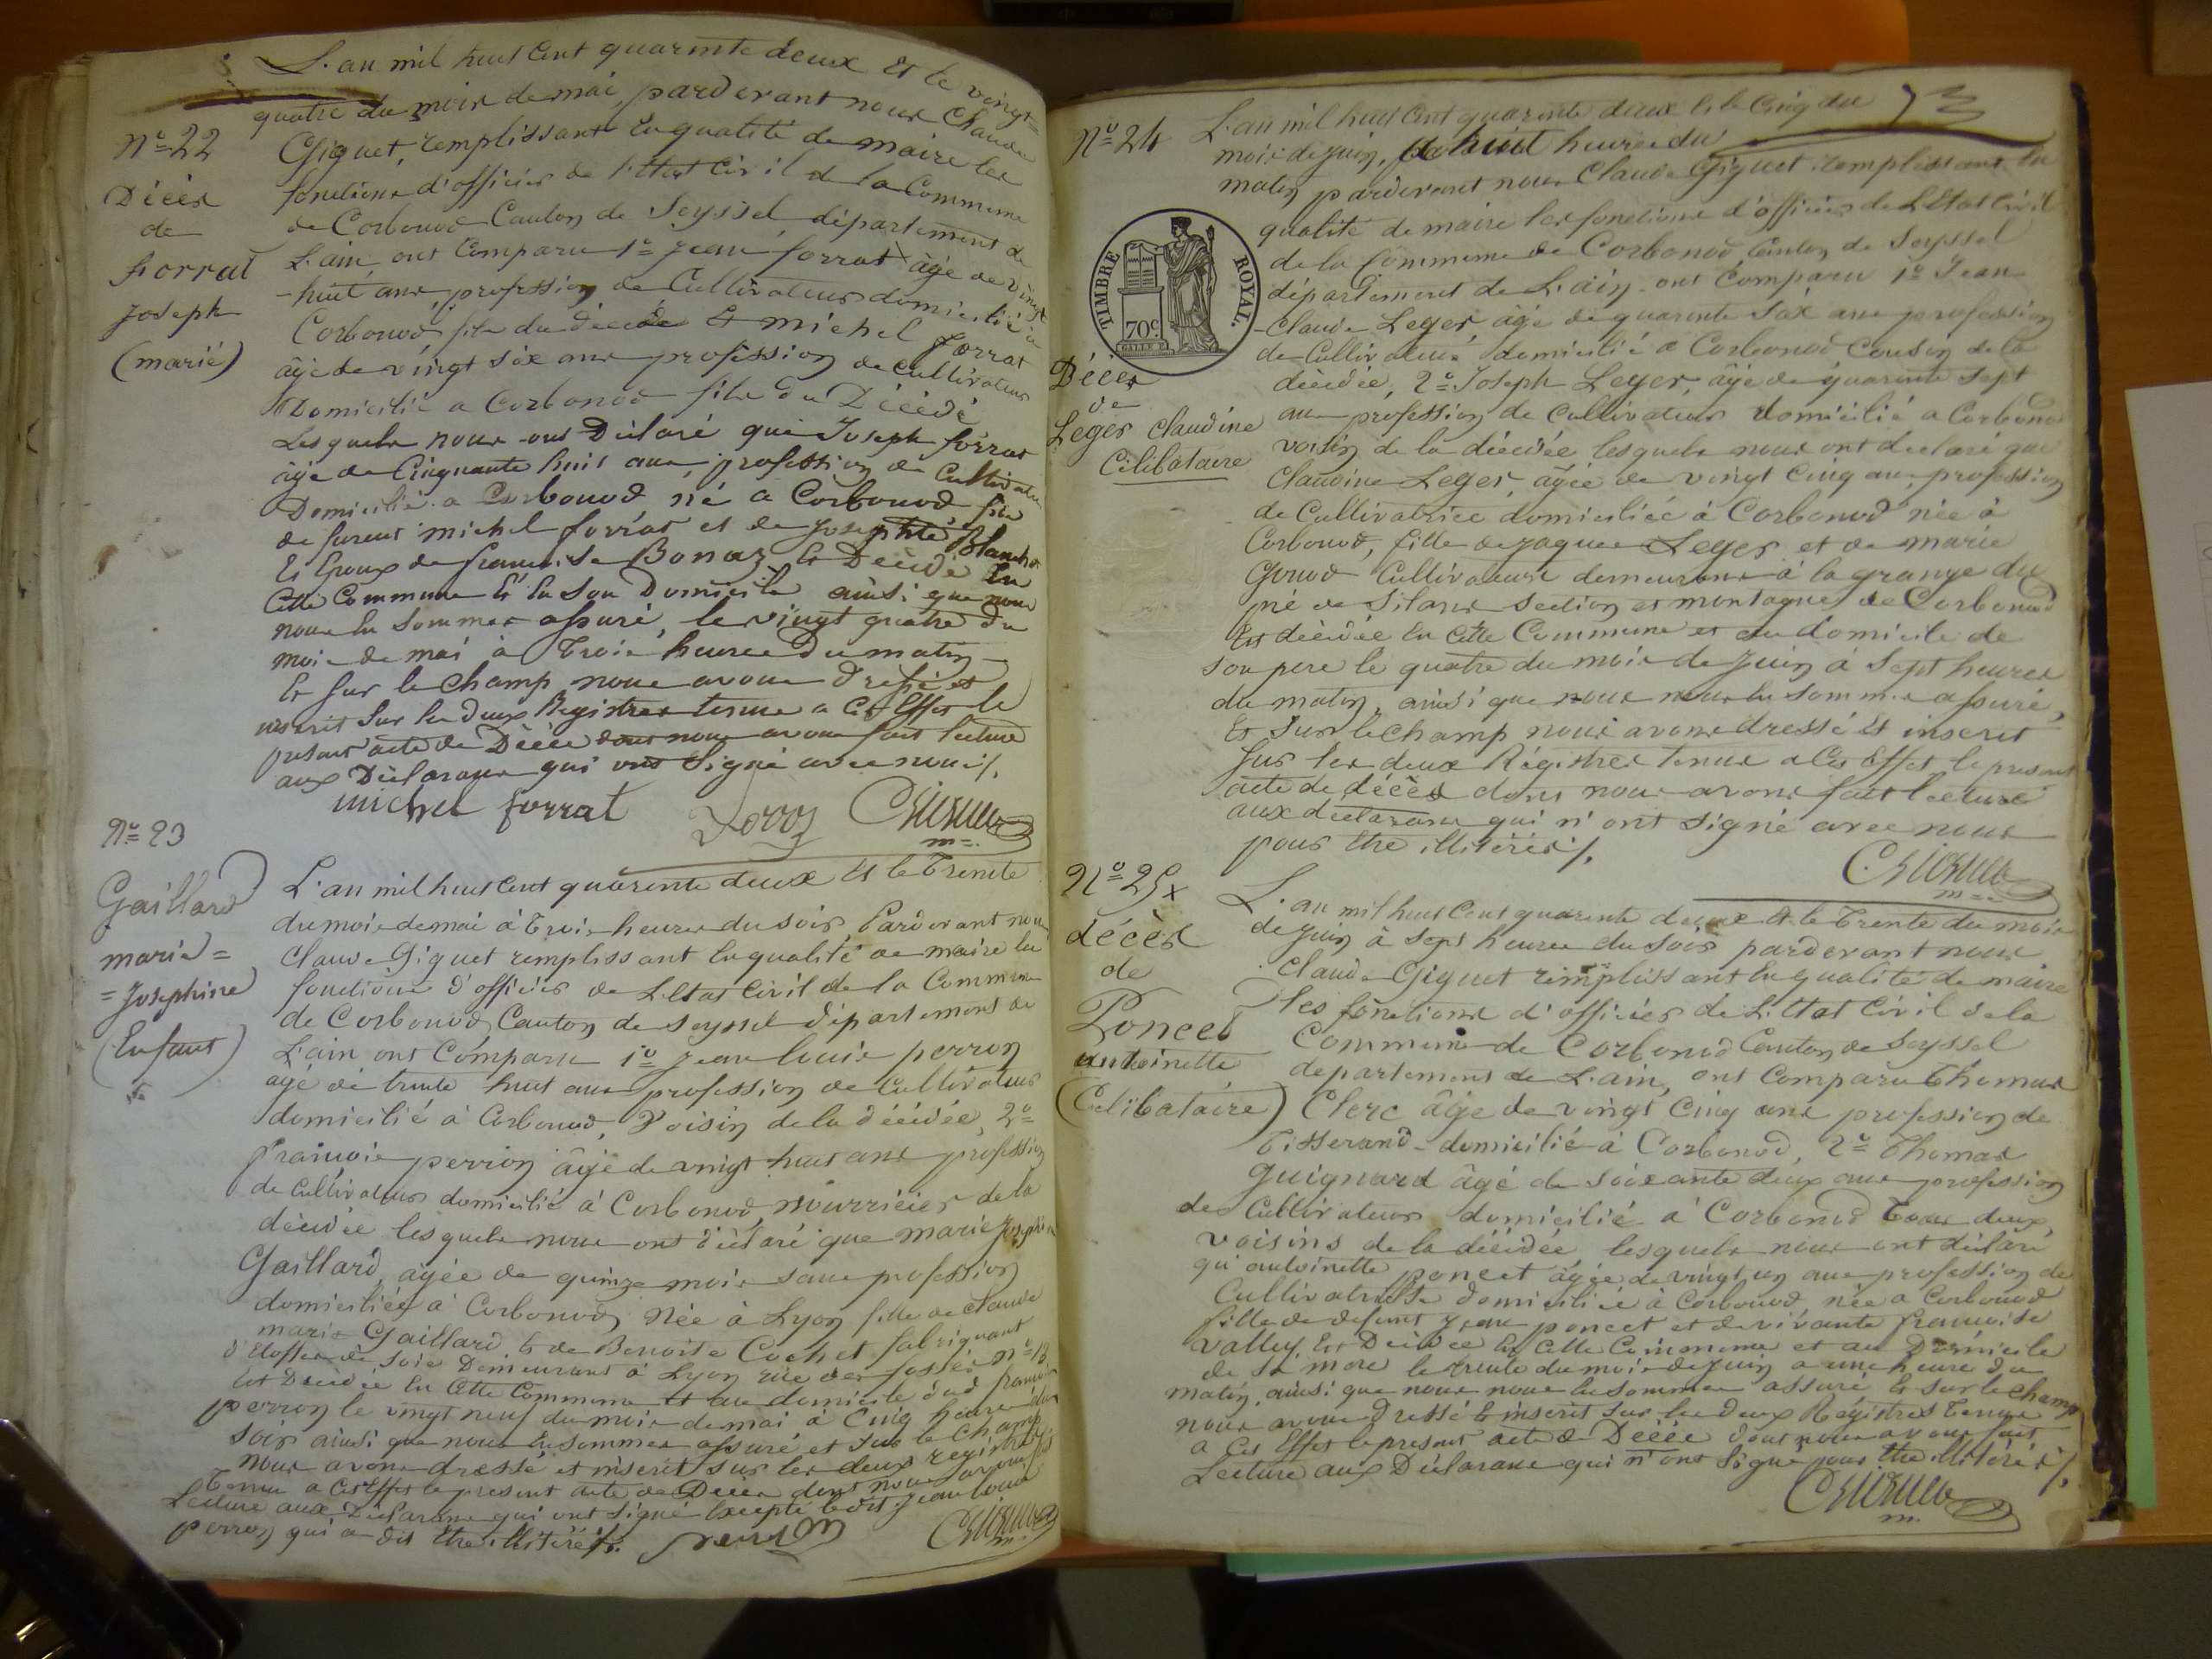 L'an mil huit Cent quarente deux Et le vingt=
quatre du mois de mai, pardevant nous Claude
Giguet, remplissant En qualité de maire les
fonctions d'officier de l'Etat Civil de la Commune
de Corbonod Canton de Seyssel, département de
L'ain, ont Comparu 1º Jean forrat âgé de vingt
-huit ans, profession de Cultivateur domicilié à
Corbonod, fils du décédé Et michel forrat
âgé de vingt six ans profession de cultivateur
Domicilié a Corbonod fils du Décédé
Lesquels nous ont Déclaré que Joseph forrat
âgé de Cinquante huit ans, profession de Cultivateur
Domicilié a Corbonod né a Corbonod fils
de furent michel forrat et de Josephte Blanchet
Et Epoux de francoise Bonaz Et Décédé En
Cette Commune Et En Son Domicile ainsi que nous
nous En Sommes assuré, le vingt quatre du
mois de mai à Trois heures Du matin
Et Sur le Champ nous avons dressé et
inscrit Sur les deux Registres tenus a Cet Effet le
présent acte de Décès dont nous avons fait lecture
aux Déclarans qui ont Signé avec nous ./.
michel forrat
Nº 22
Décès
de
forrat
Joseph
(marié)
Nº 23
Gaillard
marie=
=Josephine
(Enfant)
L'an mil huit Cent quarente deux Et le Trente
du mois de mai à Trois heures du soir, Pardevant nous
Claude Giguet remplissant En qualité de maire les
fonctions d'officier de L'Etat Civil de la Commune
de Corbonod, Canton de Seyssel département de
L'ain ont Comparu 1º Jean louis perron
âgé de trente huit ans profession de Cultivateur
domicilié à Corbonod, Voisin de la décédée, 2º
francois perron âgé de vingt huit ans profession
de Cultivateur domicilié à Corbonod nourricier de la
décédée lesquels nous ont déclaré que marie Josephine
Gaillard, agée de quinze mois sans profession
domiciliée a Corbonod, Née à Lyon fille de Claude
marie Gaillard Et de Benoite Cochet fabriquant
d'Etoffes de Soie Demeurant à Lyon rue des fossés nº 13
Est Décédée En Cette Commune Et au domicile dud francois
perron le vingt neuf du mois de mai à Cinq heures du
soir ainsi que nous En sommes assuré et sur le Champ
nous avons dressé et inscrit sur les deux registres
Tenus a Cet Effet le present acte de Décès dont nous avons fait
Lecture aux Déclarans qui ont Signé Excepté ledit Jean louis
perron qui a dit Etre illitéré ./. perron
Nº 24
L'an mil huit Cent quarente deux Et le Cinq du
mois de juin, a huit heures du
matin pardevant nous Claude Giguet remplissant En
qualité de maire les fonctions d'officier de L'Etat Civil
de la Commune de Corbonod, Canton de Seyssel
département de L'ain ont Comparu 1º Jean
Claude Leger, âgé de quarente six ans profession
de Cultivateur domicilié a Corbonod Cousin de la
décédée, 2º Joseph Leger, âgé de quarente sept
ans profession de Cultivateur domicilié a Corbonod
voisin de la décédée lesquels nous ont declaré que
Claudine Leger, âgée de vingt Cinq ans, profession
de Cultivatrice domiciliée à Corbonod née à
Corbonod, fille de jaques Leger et de marie
Gonod Cultivateurs demeurans à la grange du
pré de Silans section et montagne de Corbonod
Est décédée En Cette Commune et au domicile de
son pere le quatre du mois de Juin à Sept heures
du matin, ainsi que nous nous En sommes assuré,
Et Sur le champ nous avons dressé Et inscrit
Sur les deux Régistres tenus a Cet Effet le présent
acte de décès dont nous avons fait lecture
aux déclarans qui n'ont signé avec nous
pour Etre illitérés ./.
TIMBRE ROYAL.
70c
Décès
de
Leger Claudine
Célibataire
Nº 25 x
décès
de
Poncet
antoinette
(Célibataire)
L'an mil huit Cent quarente deux Et le Trente du mois
de Juin à sept heures du soir pardevant nous
Claude Giguet remplissant En qualité de maire
les fonctions d'officier de L'Etat Civil de la
Commune de Corbonod Canton de Seyssel
departement de L'ain, ont Comparu Thomas
Clerc âgé de vingt Cinq ans profession de
Tisserand domicilié à Corbonod, 2º Thomas
Guignard âgé de soixante deux ans profession
de Cultivateur domicilié à Corbonod Tous deux
voisins de la décédée lesquels nous ont déclaré
qu'antoinette poncet âgée de vingt un ans profession de
Cultivatrice domiciliée à Corbonod, née a Corbonod
fille de defunt Jean poncet et de vivante francoise
Valley, Est Décédée En Cette Commune et au Domicile
de sa mere le trente du mois de juin a une heure du
matin, ainsi que nous nous En sommes assuré Et sur le Champ
nous avons Dressé Et inscrit sur les deux Régistres tenus
a Cet Effet le present acte de Décès dont nous avons fait
Lecture aux Déclarans qui n'ont Signé pour Etre illitérés ./.